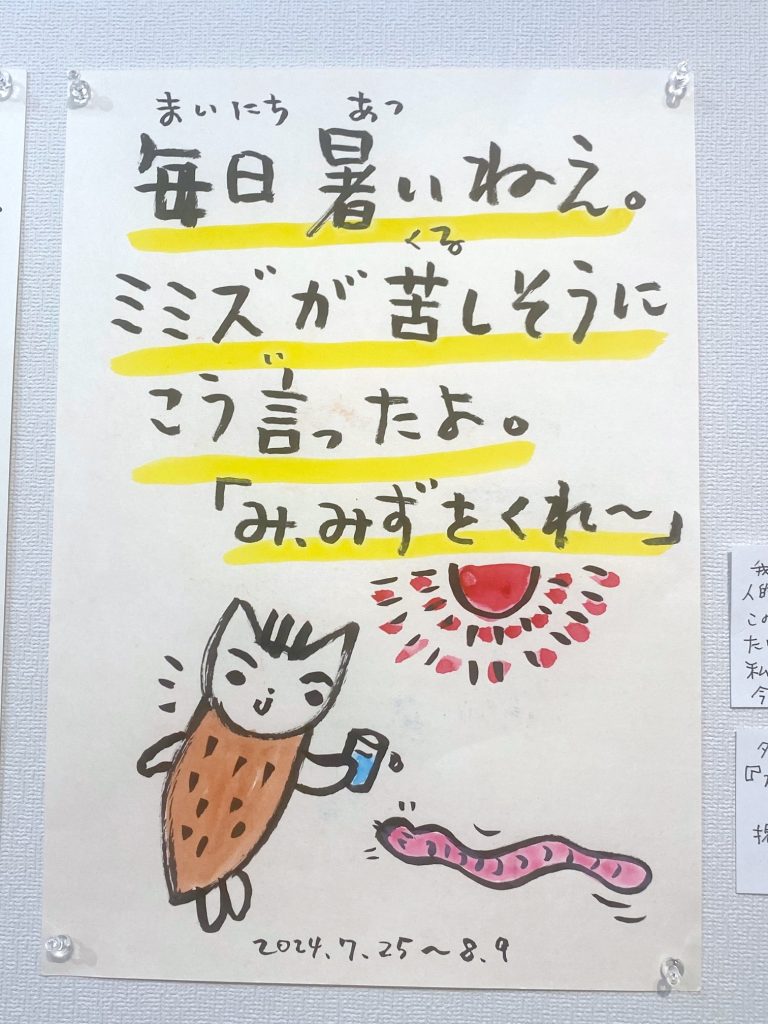 まいにち あつ
毎日暑いねえ。
くる
ミミズが苦しそうに
い
こう言ったよ。
「み、みずをくれ〜」
2024.7.25〜8.9
人的
この
私
今